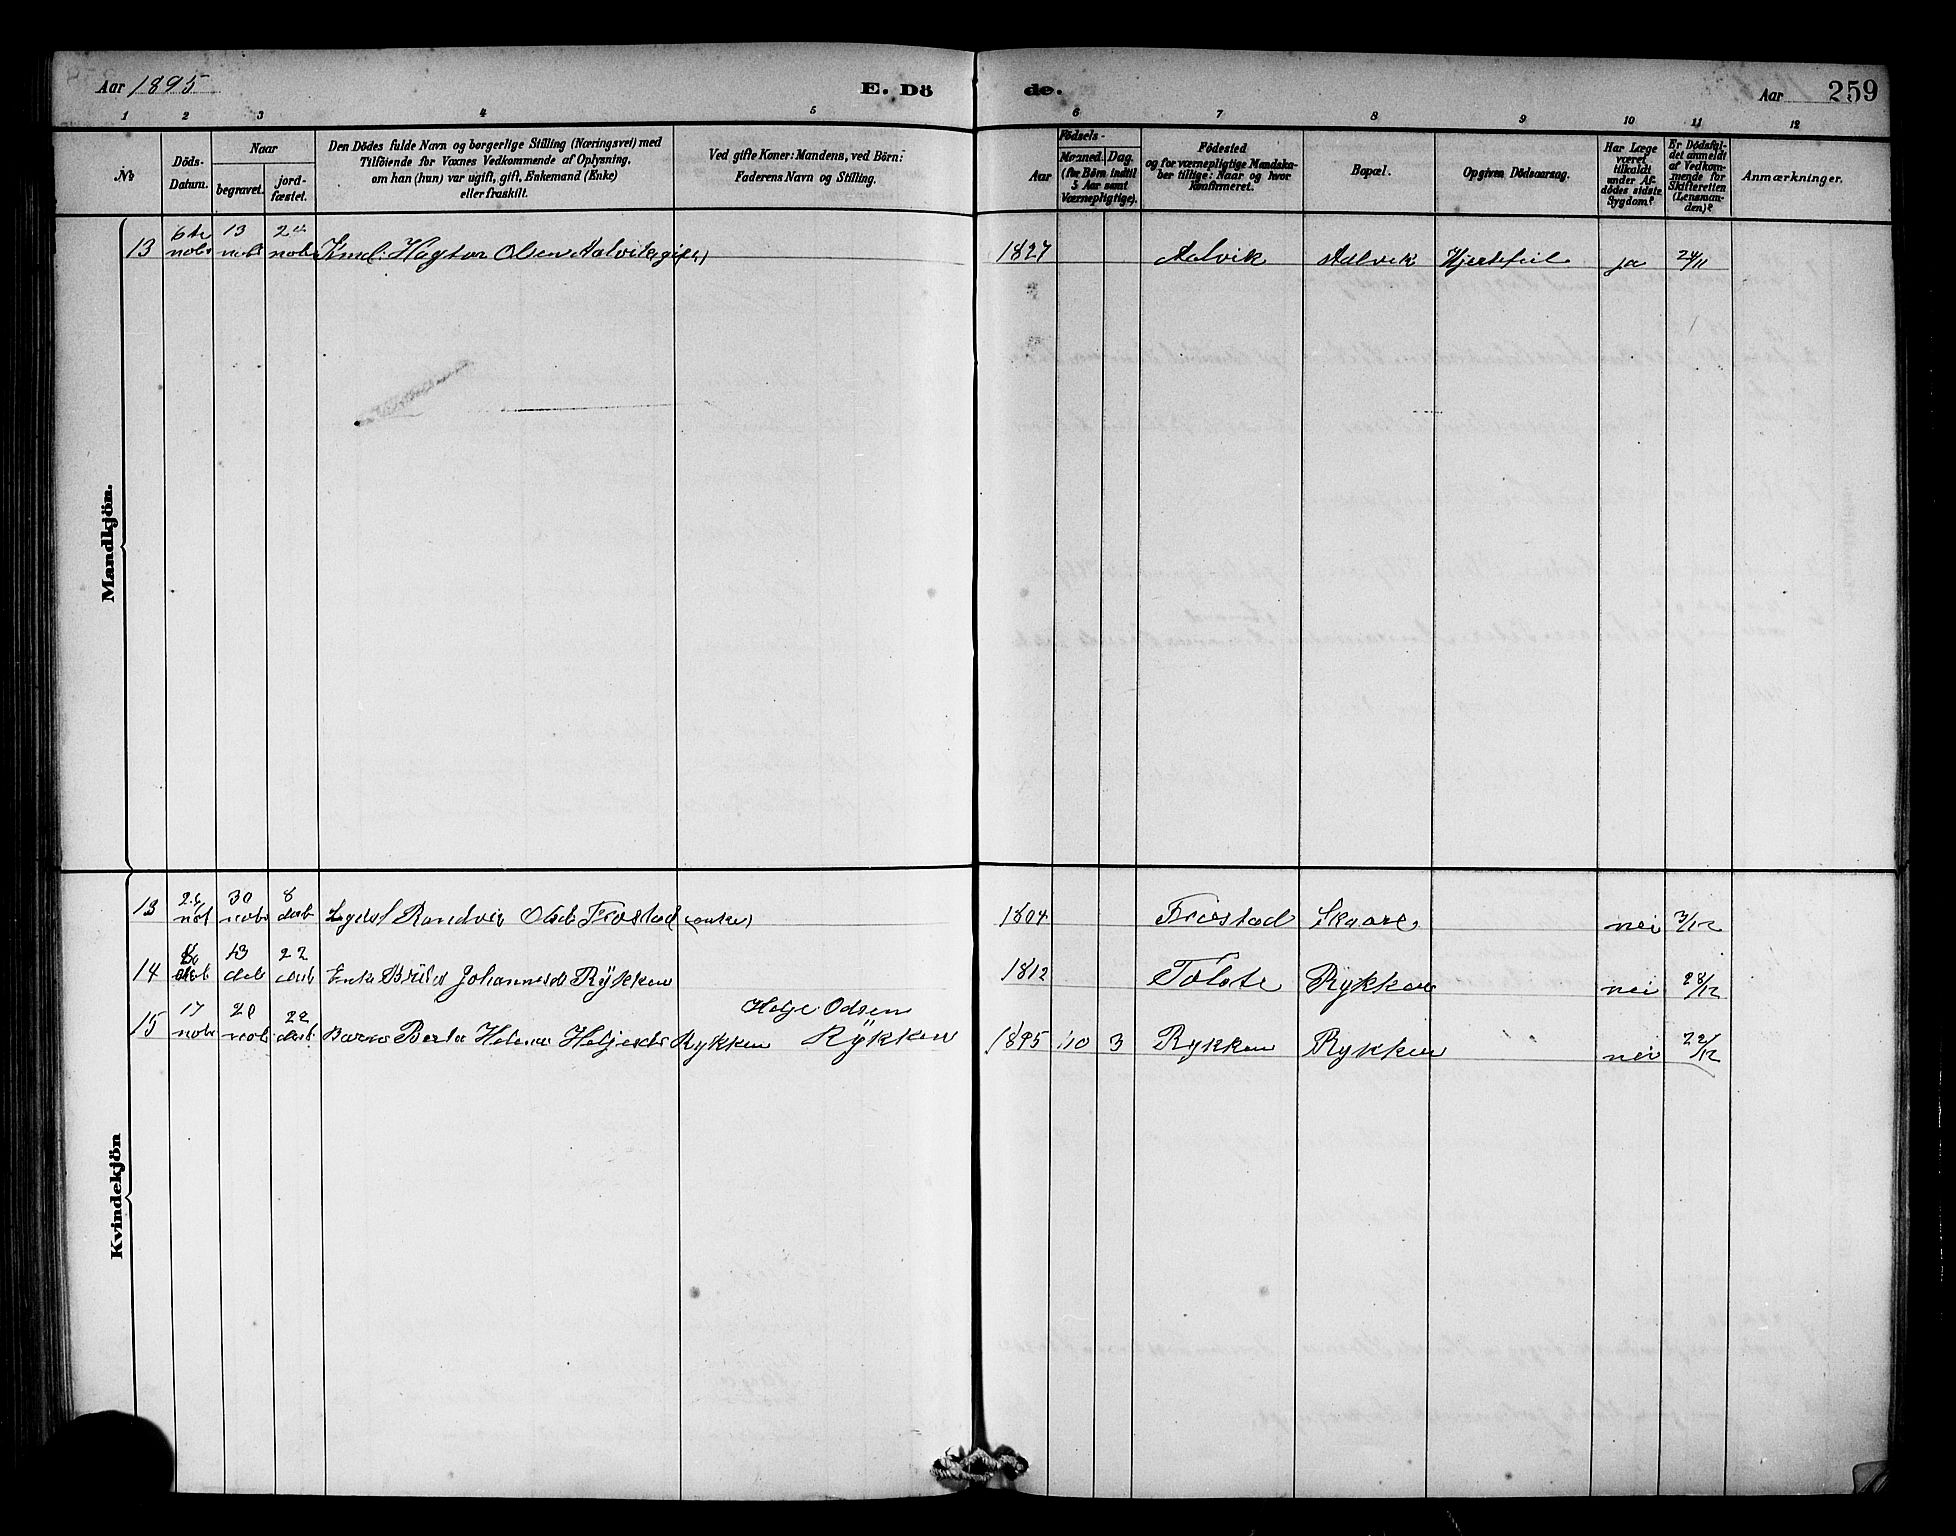 Aar 1895
E. Dö
de.
Aar
259
1 2 3 4 5 6 7 8 9 10 11 12
No
Döds-
Datum.
Naar
begravet.
jord-
fæstet.
Den Dödes fulde Navn og borgerlige Stilling (Næringsvei) med
Tilföiende for Voxnes Vedkommende af Oplysning,
om han (hun) var ugift, gift, Enkemand (Enke)
eller fraskilt.
Ved gifte Koner: Mandens, ved Börn:
Faderens Navn og Stilling.
Födsels-
Aar
Maaned. Dag.
(for Börn indtil
5 Aar samt
Værnepligtige).
Födested
og for værnepligtige Mandska-
ber tillige: Naar og hvor
Konfirmeret.
Bopæl.
Opgiven Dödsaarsag.
Har Læge
været
tilkaldt
under Af-
dödes sidste
Sygdom?
Er Dödsfal-
det anmeldt
af Vedkom-
mende for
Skifteretten
(Lensman-
den)?
Anmærkninger.
Mandkjön.
13 6te nobr 13 nobr 24 nobr Olsen Aalvik (gift) 1827 Aalvik Aalvik Hjertefeil ja 24/11
Kvindekjön
13 26 nob 30 nobr 8 deb Randvei Olsd Frostad (enke) 1804 Frostad Skaare nei 3/12
14 deb 13 deb 22 deb Enke Johannesd Rykken 1812 Tolote Rykken nei 28/12
Helje Odsen
15 17 nobr 20 nobr 22 deb Barne Berta Helena Heljesd Rykken Rykken 1895 10 3 Rykken Rykken nei 22/12